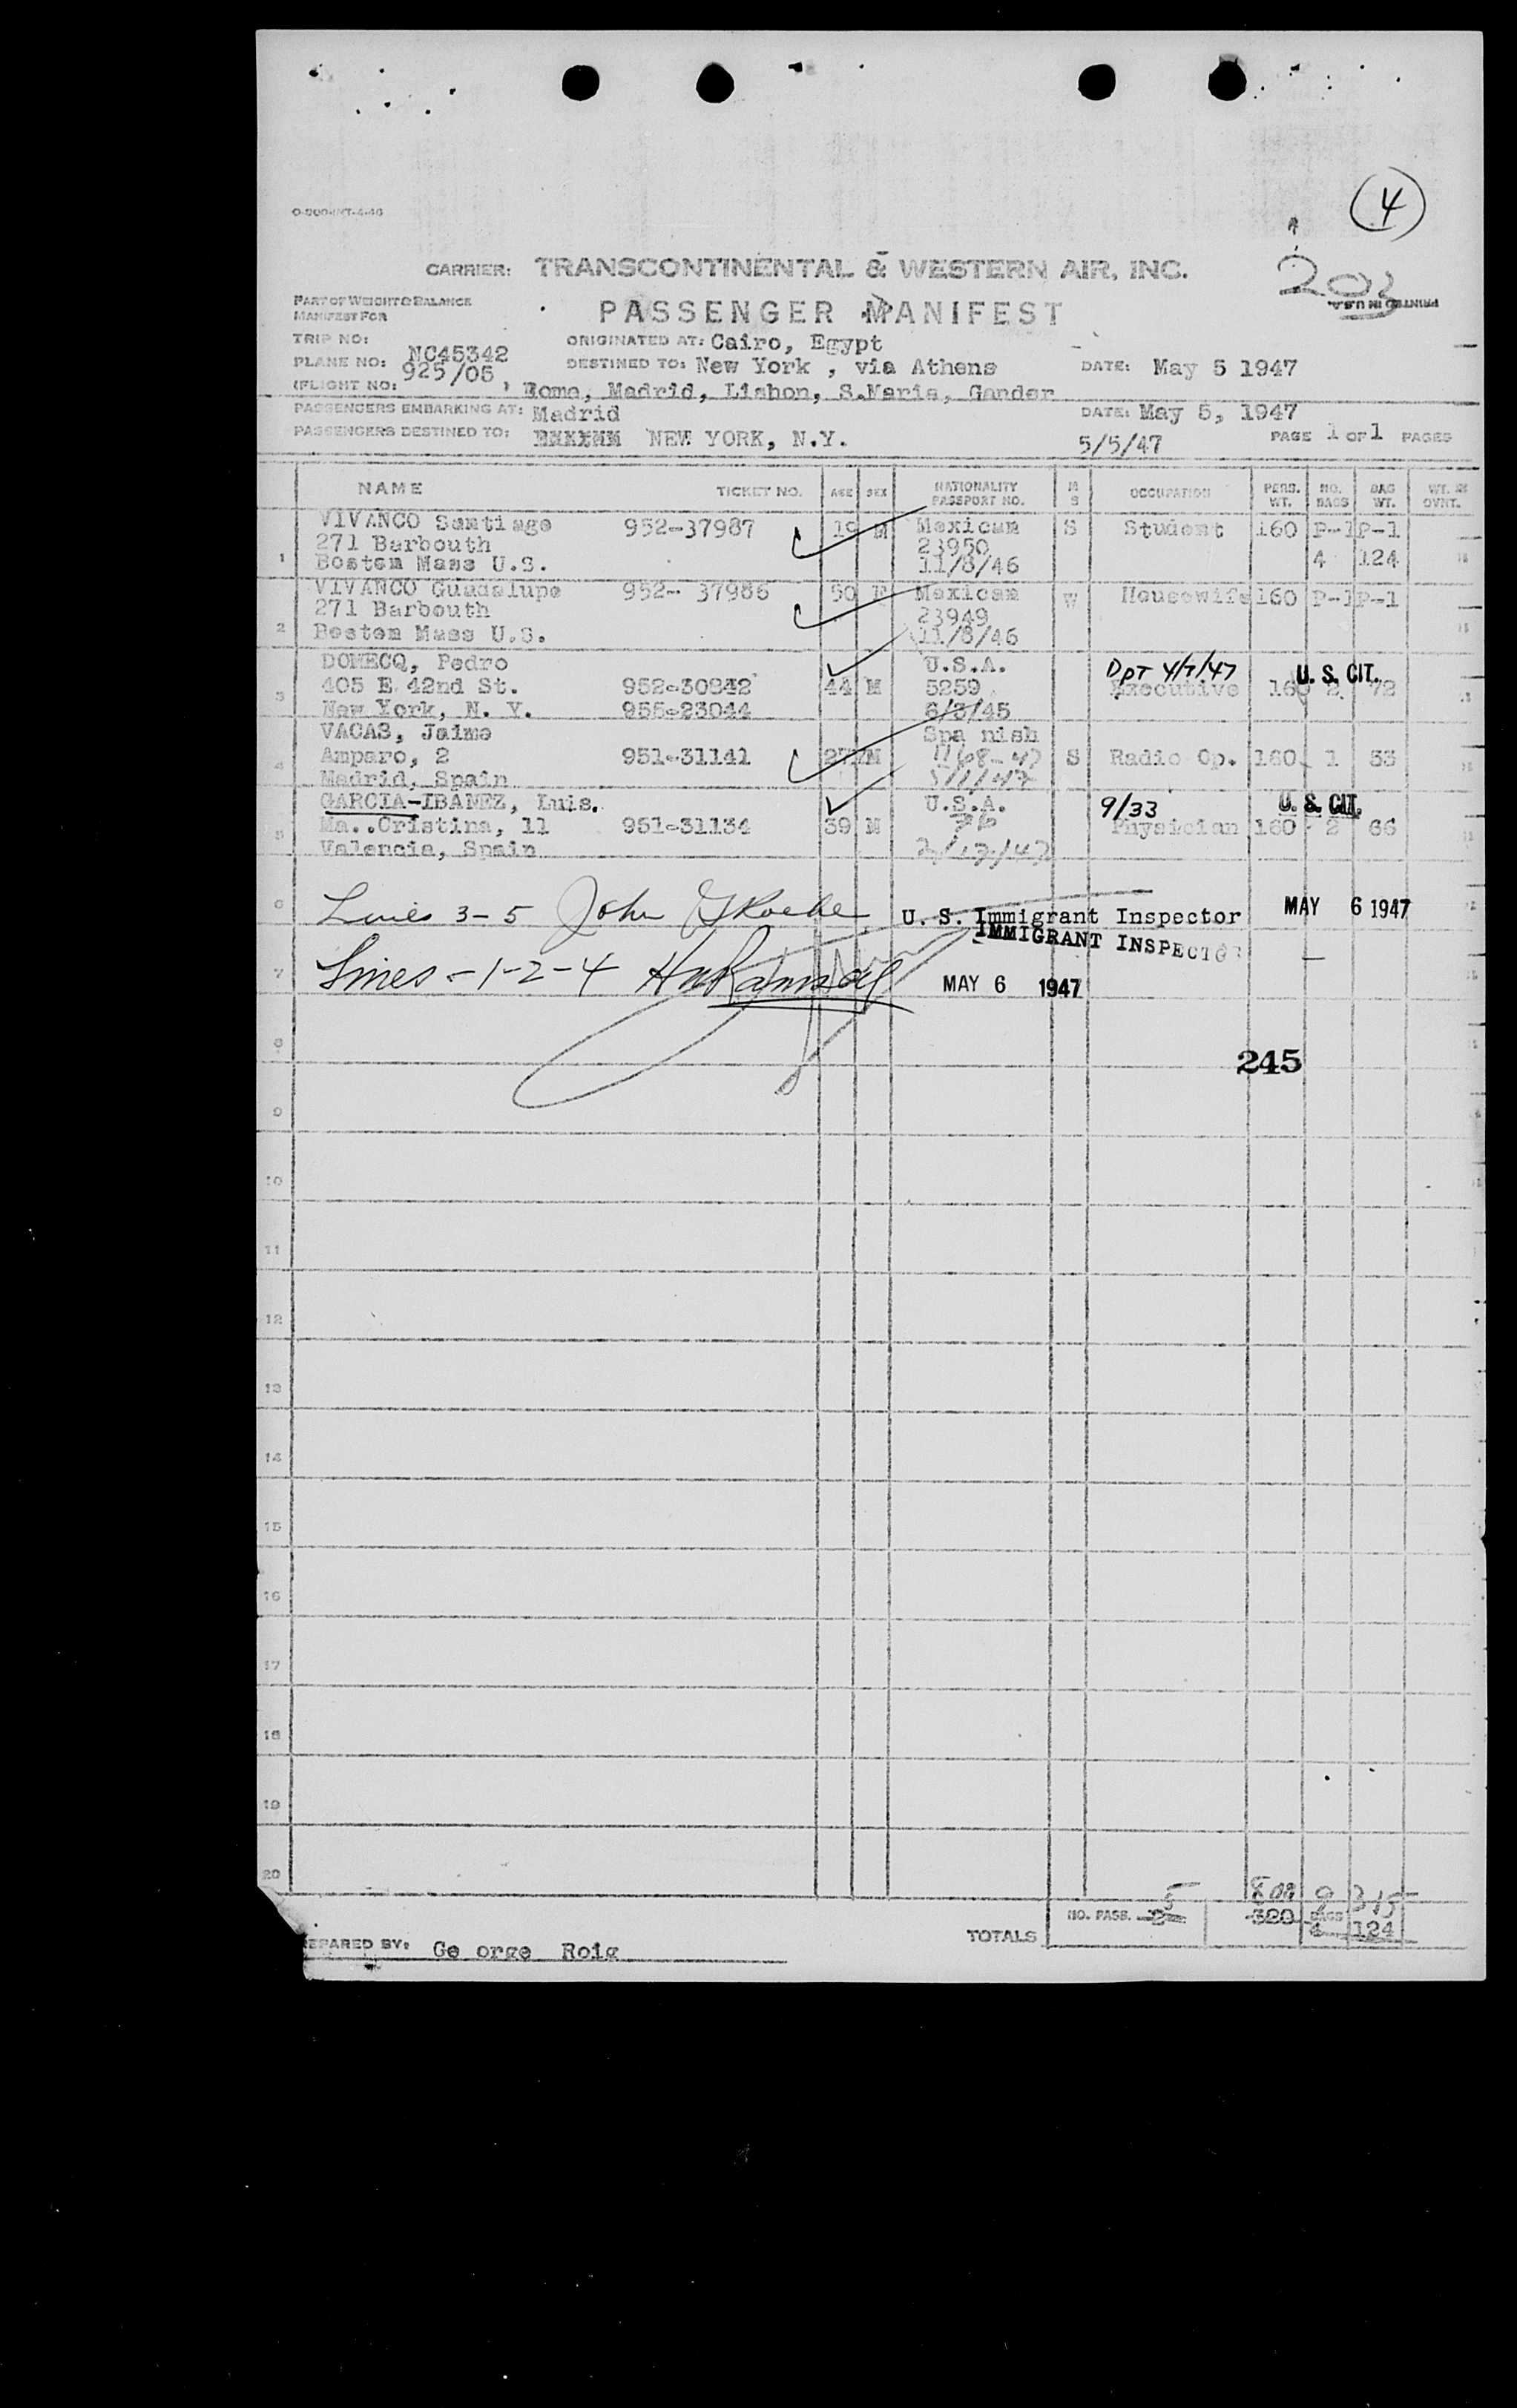 4
CARRIER: TRANSCONTINENTAL & WESTERN AIR, INC.
203
PRINTED IN U.S.A.
PART OF WEIGHT & BALANCE
MANIFEST FOR
PASSENGER MANIFEST
TRIP NO:
ORIGINATED AT: Cairo, Egypt
PLANE NO: NC45342
DESTINED TO: New York , via Athens
DATE: May 5 1947
(FLIGHT NO: 925/05 , Rome, Madrid, Lisbon, S.Maria, Gander
PASSENGERS EMBARKING AT: Madrid
DATE: May 5, 1947
PASSENGERS DESTINED TO: NEW YORK, N.Y. 5/5/47 PAGE 1 OF 1 PAGES
NAME TICKET NO. AGE SEX NATIONALITY PASSPORT NO. M S OCCUPATION PERS. WT. NO. BAGS BAG WT.
VIVANCO Santiago 952-37987 19 M Mexican S Student 160 P-1 P-1
271 Barbouth 23950
1 Boston Mass U.S. 11/8/46 4 124
VIVANCO Guadalupe 952- 37986 50 F Mexican W Housewife 160 P-1 P-1
271 Barbouth 23949
2 Boston Mass U.S. 11/8/46
DOMECQ, Pedro U.S.A. Dpt 4/7/47 U. S. CIT.
3 405 E 42nd St. 952-30842 44 M 5259 Executive 160 2 72
New York, N. Y. 955-23044 6/8/45
VACAS, Jaime Spa nish
4 Amparo, 2 951-31141 27 M 1168-47 S Radio Op. 160 1 53
Madrid, Spain 5/1/47
GARCIA-IBANEZ, Luis. U.S.A. 9/33 U. S. CIT.
5 Ma..Cristina, 11 951-31134 39 M 76 Physician 160 2 66
Valencia, Spain
6 Lines 3-5 John U. S. Immigrant Inspector MAY 6 1947
IMMIGRANT INSPECTOR
7 Lines - 1-2-4 MAY 6 1947
8
245
9
10
11
12
13
14
15
16
17
18
19
20
5 800 9 315
TOTALS NO. PASS. 2 320 BAGS 4 124
EPARED BY: Ge orge Roig